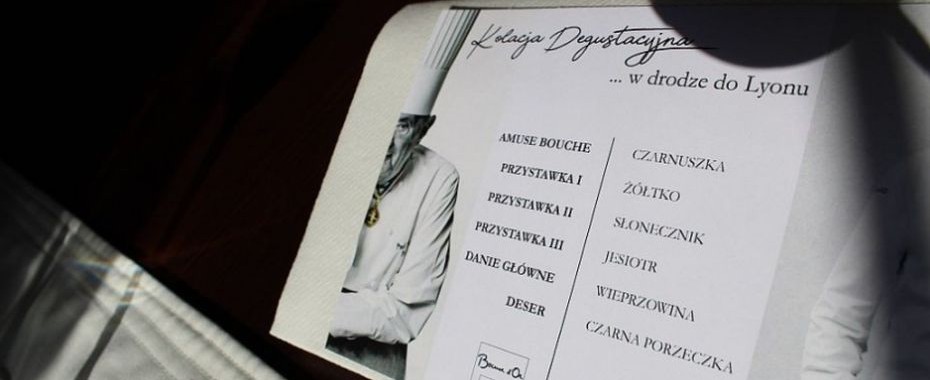 Kolacja Degustacyjna
... w drodze do Lyonu
AMUSE BOUCHE
PRZYSTAWKA I
PRZYSTAWKA II
PRZYSTAWKA III
DANIE GŁÓWNE
DESER
CZARNUSZKA
ŻÓŁTKO
SŁONECZNIK
JESIOTR
WIEPRZOWINA
CZARNA PORZECZKA